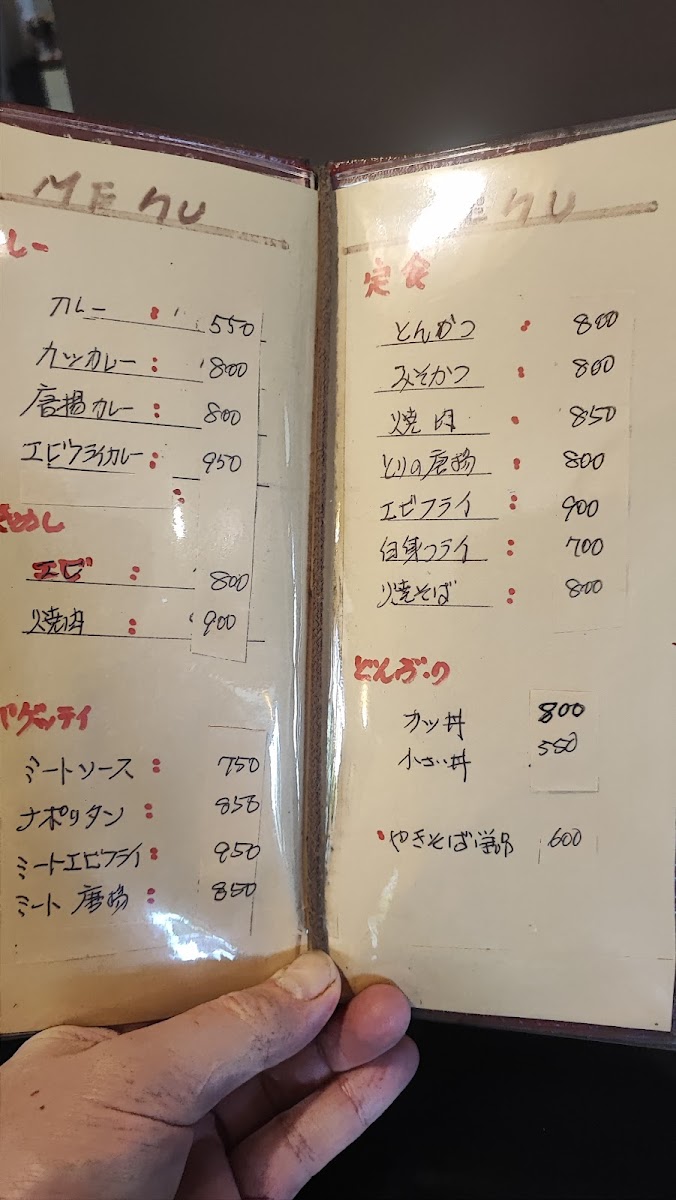 MENU
レー
カレー : 550
カツカレー : 800
唐揚カレー : 800
エビフライカレー : 950
:
めし
エビ : 800
焼肉 : 900
パゲッティ
ミートソース : 750
ナポリタン : 850
ミートエビフライ : 950
ミート唐揚 : 850
ENU
定食
とんかつ : 800
みそかつ : 800
焼肉 : 850
とりの唐揚 : 800
エビフライ : 900
白身フライ : 700
焼そば : 800
どんぶり
カツ丼 800
小さい丼 550
やきそば単品 600